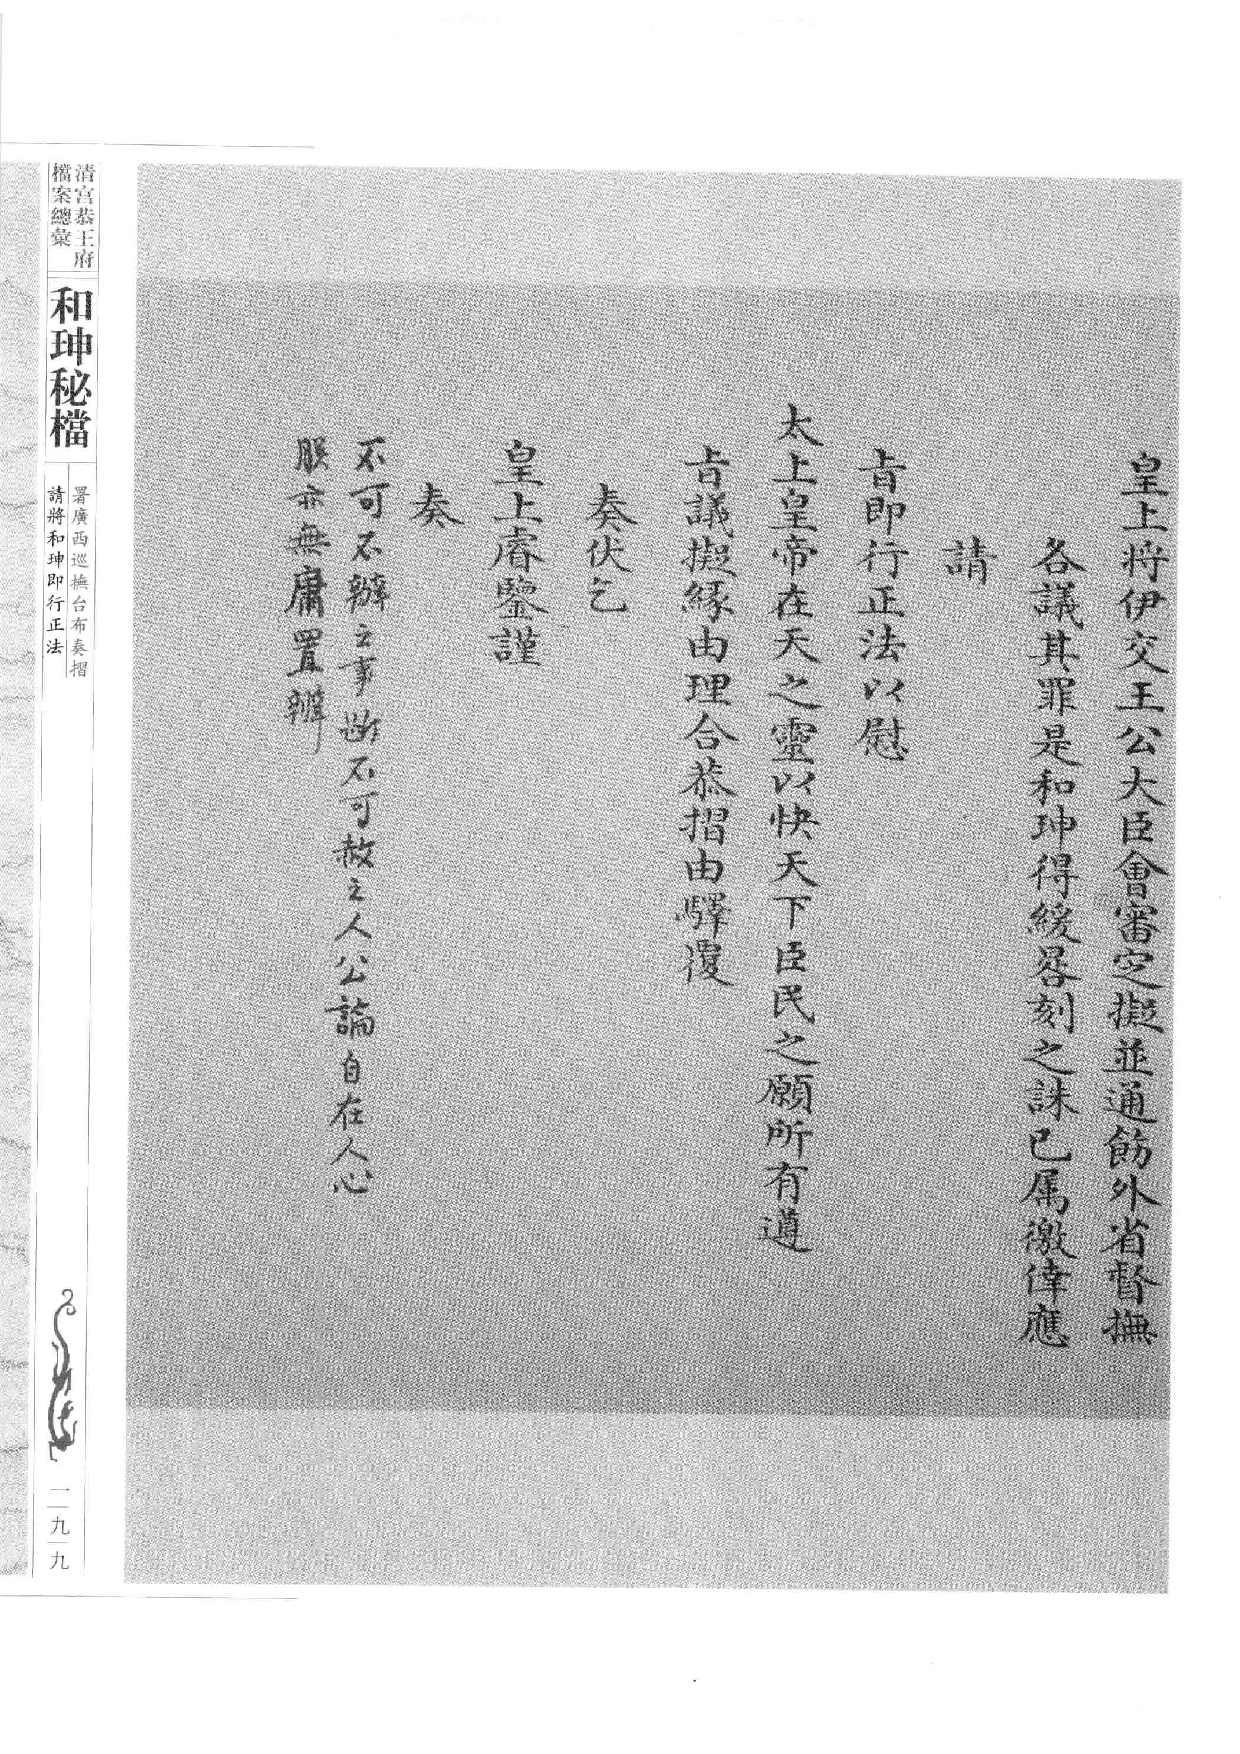 皇上将伊交王公大臣會審定擬並通飭外省督撫
各議其罪是和珅得緩晷刻之誅已属徼倖應
請
旨即行正法以慰
太上皇帝在天之靈以快天下臣民之願所有遵
旨議擬緣由理合恭摺由驛覆
奏伏乞
皇上睿鑒謹
奏
不可不辦之事断不可赦之人公論自在人心
朕亦無庸置辦
清宮恭王府
檔案總彙
和珅秘檔
署廣西巡撫台布奏摺
請將和珅即行正法
一九九